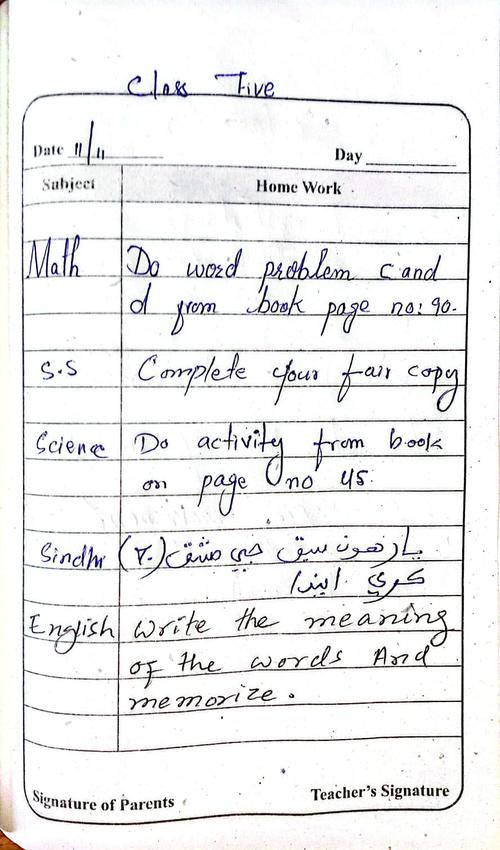 Class Five
Date 11/11 Day
Subject Home Work
Math Do word problem c and
d from book page no: 90.
S.S Complete your fair copy
Science Do activity from book
on page no 45.
Sindhi يارهون سبق جي مشق (٢٠)
ڪري ايندا
English Write the meaning
of the words And
memorize.
Signature of Parents Teacher's Signature